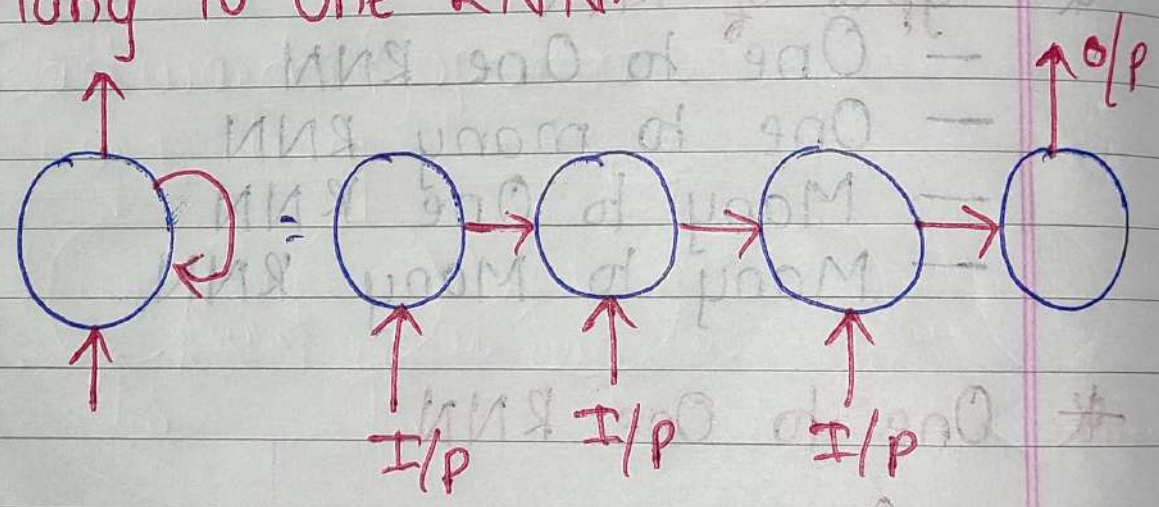 Many to One RNN.
O/P
=
I/P I/P I/P